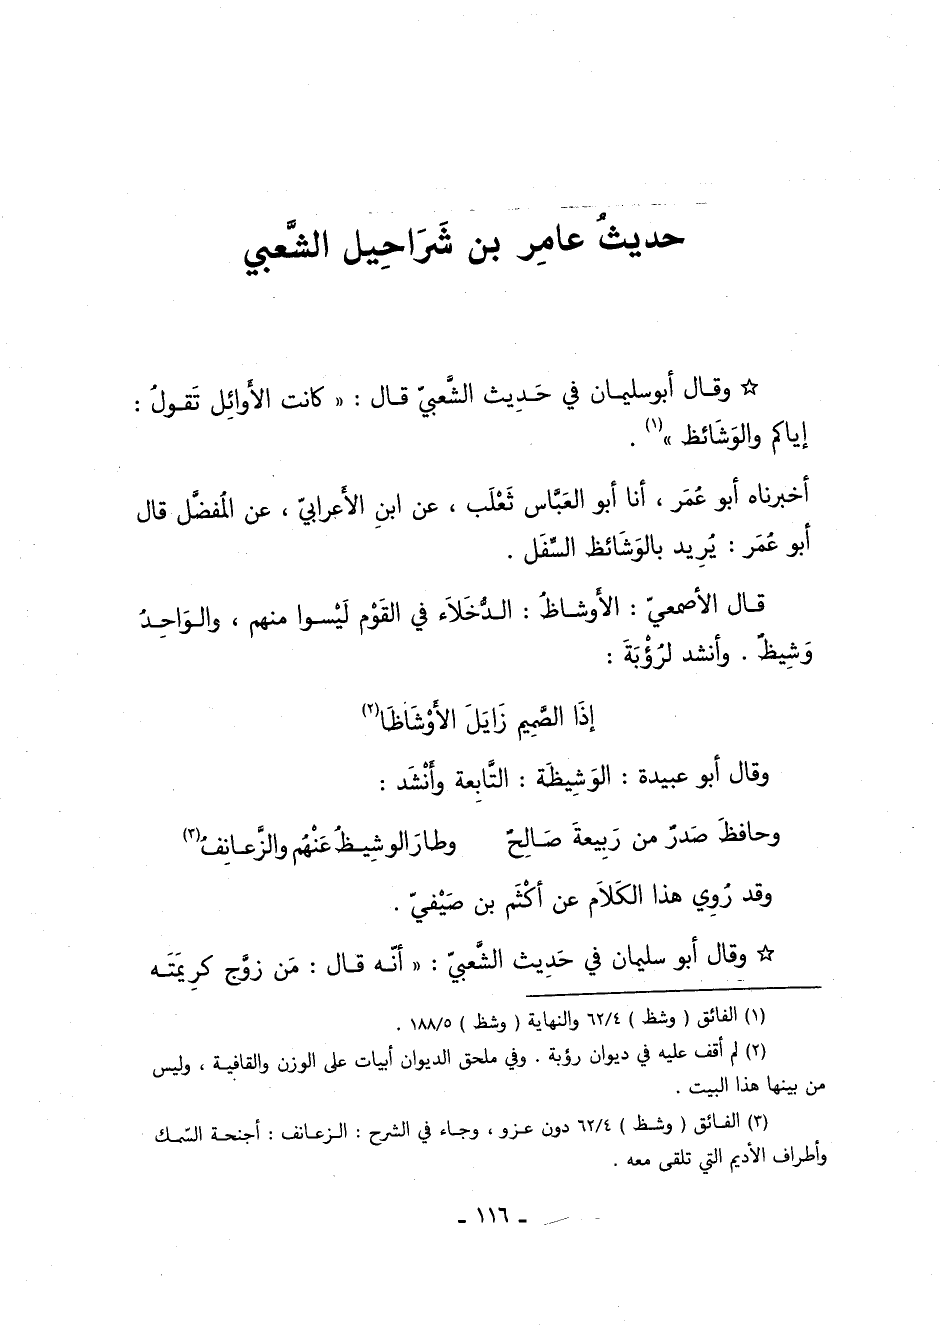 حديثُ عامِر بن شَرَاحِيل الشَّعبي
☆ وقـال أبوسليمـان في حَـدِيث الشَّعبيّ قـال : « كانت الأَوائِل تَقـولُ :
إياكم والوَشَائظ »(١) .
أخبرناه أبو عُمَر ، أنا أبو العَبَّاس ثَعْلَب ، عن ابنِ الأَعرابيّ ، عن المُفضَّل قال
أبو عُمَر : يُرِيد بالوَشَائظ السِّفَل .
قـال الأصمعيّ : الأَوشـاظُ : الـدُّخَلاَء في القَوْم لَيْسـوا منهم ، والـوَاحِـدُ
وَشِيظٌ . وأنشد لرُؤْبَةَ :
إذَا الصَّمِيم زَايَلَ الأَوْشَاظَا(٢)
وقال أبو عبيدة : الوَشِيظَة : التَّابِعة وأَنْشَد :
وحافظَ صَدرٌ من رَبِيعةَ صَـالِحٌ وطارَ الوشِيـظُ عَنْهُم والزَّعـانِفُ(٣)
وقد رُوِي هذا الكَلاَم عن أكْثَم بن صَيْفيّ .
☆ وقال أبو سليمان في حَدِيث الشَّعبيّ : « أنّـه قـال : مَن زوَّج كرِيمَتَـه
(١) الفائق ( وشظ ) ٦٢/٤ والنهاية ( وشظ ) ١٨٨/٥ .
(٢) لم أقف عليه في ديوان رؤبة . وفي ملحق الديوان أبيات على الوزن والقافيـة ، وليس
من بينها هذا البيت .
(٣) الفـائق ( وشـظ ) ٦٢/٤ دون عـزو ، وجـاء في الشرح : الـزعـانف : أجنحـة السّمـك
وأطراف الأديم التي تلقى معه .
ـ ١١٦ ـ